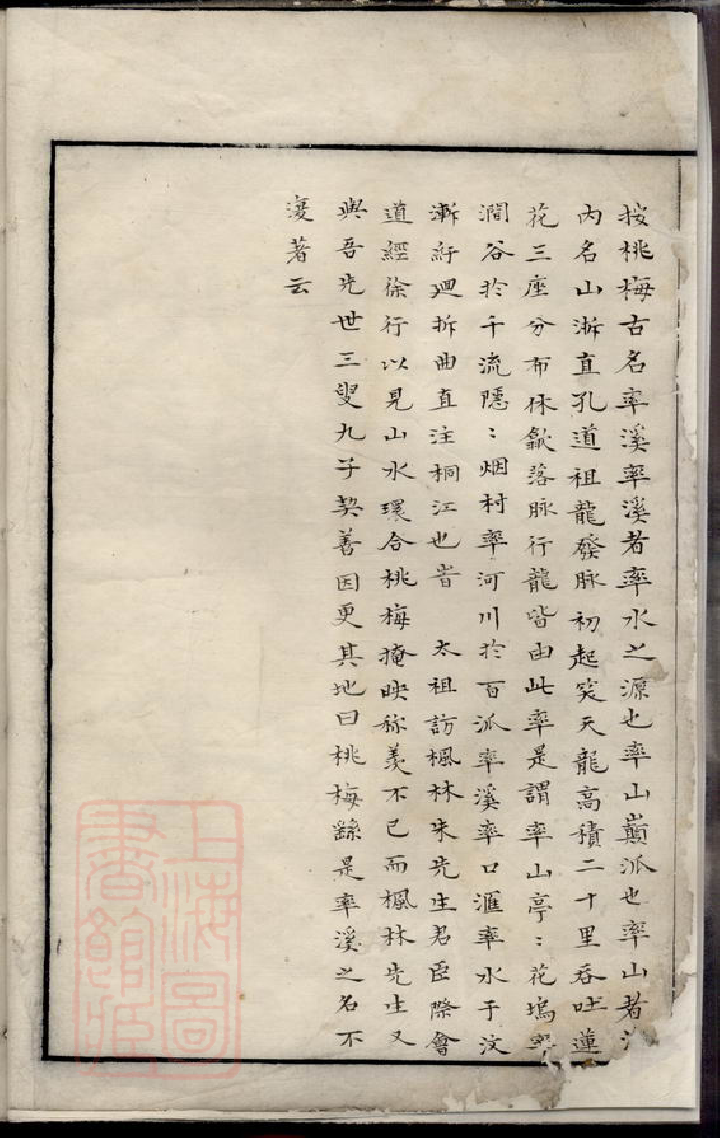 按桃梅古名率溪率溪者率水之源也率山巔派也率山者
内名山浙直孔道祖龍發脉初起突天龍高積二十里吞吐蓮
花三座分布休歙落脉行龍皆由此率是謂率山亭〻花塢
澗谷於千流隱〻烟村率河川於百派率溪率口滙率水于汶
漸紆廻拆曲直注桐江也昔　太祖訪楓林朱先生君臣際會
道經徐行以見山水環合桃梅掩映称羡不已而楓林先生又
與吾先世三叟九子契善因更其地曰桃梅繇是率溪之名不
復著云
上海圖
書館藏